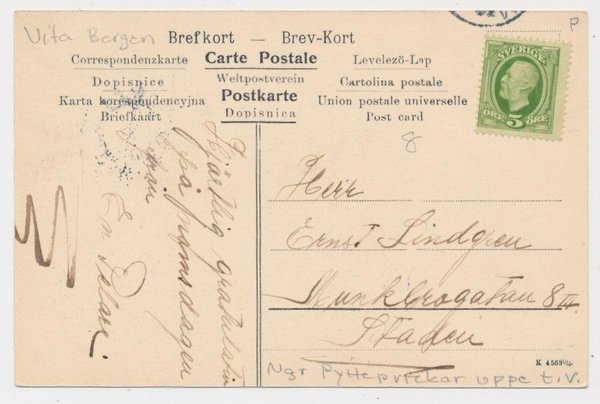 Vita Bergen
Brefkort — Brev-Kort
Correspondenzkarte Carte Postale Levelező-Lap
Dopisnice Weltpostverein Cartolina postale
Karta korespondencyjna Postkarte Union postale universelle
Briefkaart Dopisnica Post card
P
SVERIGE
ÖRE 5 ÖRE
8
Hjärtlig gratulation
på namnsdagen
från
En
Herr
Ernst Lindgren
Munkbrogatan 8 III
Staden
K 4568
Ngr Pytteprickar uppe t.v.